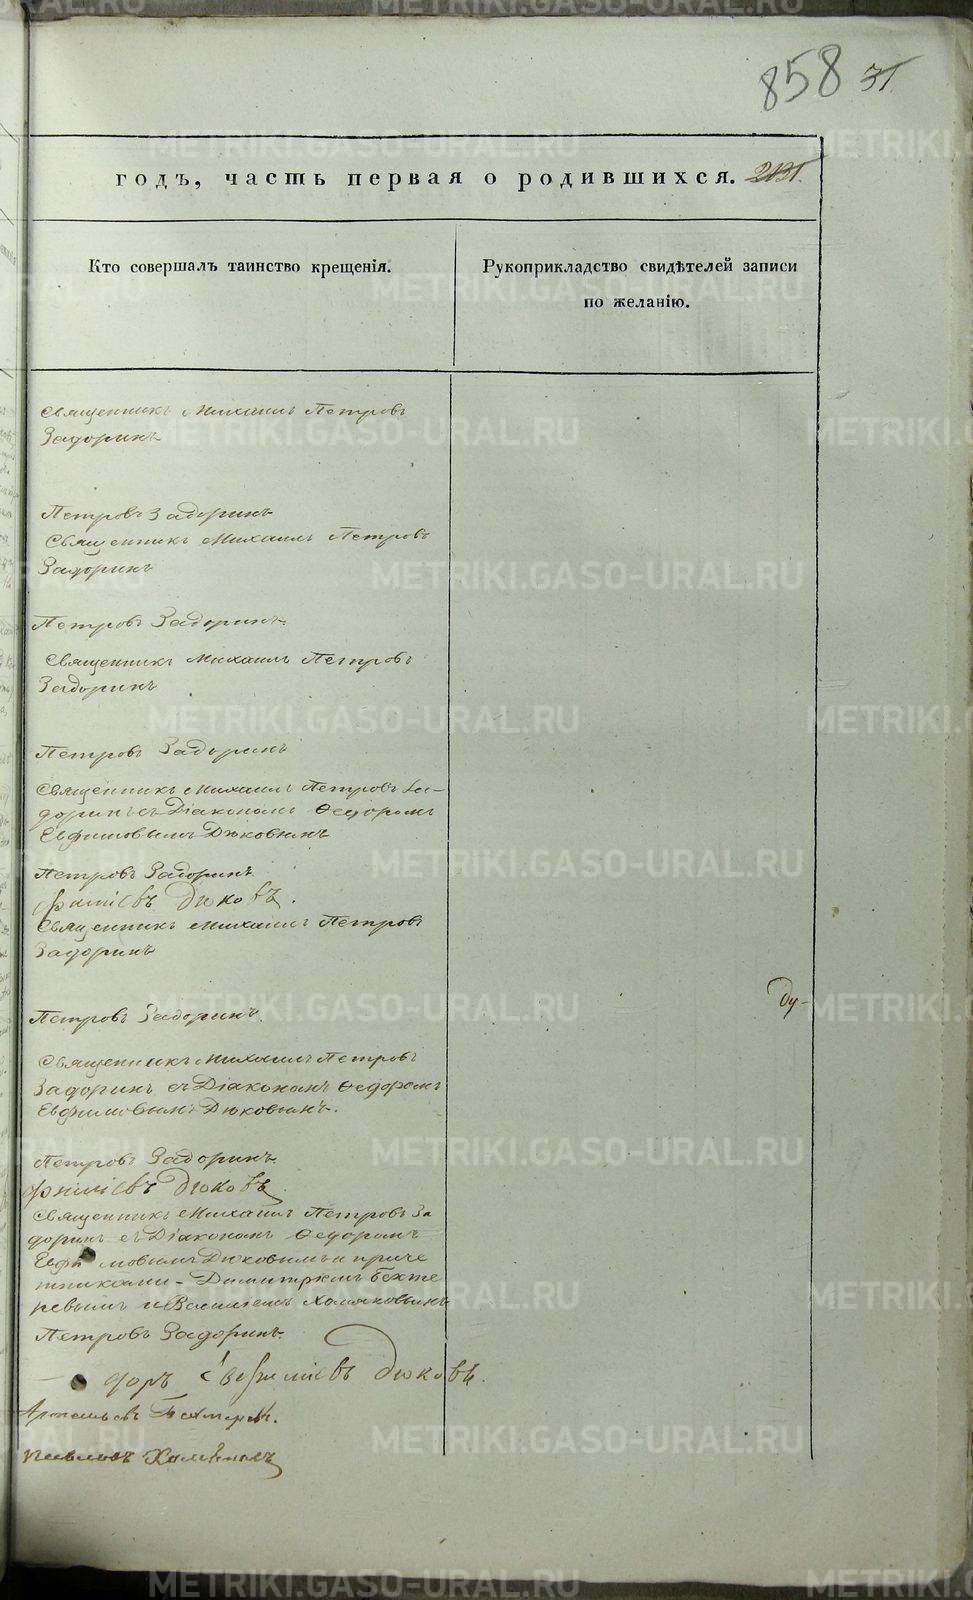 858 31
годъ, часть первая о родившихся. 231.
Кто совершалъ таинство крещенія.
Рукоприкладство свидѣтелей записи
по желанію.
Священникъ Михаилъ Петровъ
Задоринъ
Петровъ Задоринъ
Священникъ Михаилъ Петровъ
Задоринъ
Петровъ Задоринъ.
Священникъ Михаилъ Петровъ
Задоринъ
Петровъ Задоринъ
Священникъ Михаилъ Петровъ За-
доринъ съ Діакономъ Ѳедоромъ
Евфимовымъ Дюковымъ
Петровъ Задоринъ
Дюковъ.
Священникъ Михаилъ Петровъ
Задоринъ
Ду-
Петровъ Задоринъ.
Священникъ Михаилъ Петровъ
Задоринъ съ Діакономъ Ѳедоромъ
Евфимовымъ Дюковымъ.
Петровъ Задоринъ
Дюковъ
Священникъ Михаилъ Петровъ За
доринъ съ Діакономъ Ѳедоромъ
Евфимовымъ Дюковымъ и приче
тниками - Димитріемъ Бехте
ревымъ и Василіемъ Хомяковымъ
Петровъ Задоринъ.
доръ Дюковъ.
Павловъ Хомяковъ
METRIKI.GASO-URAL.RU